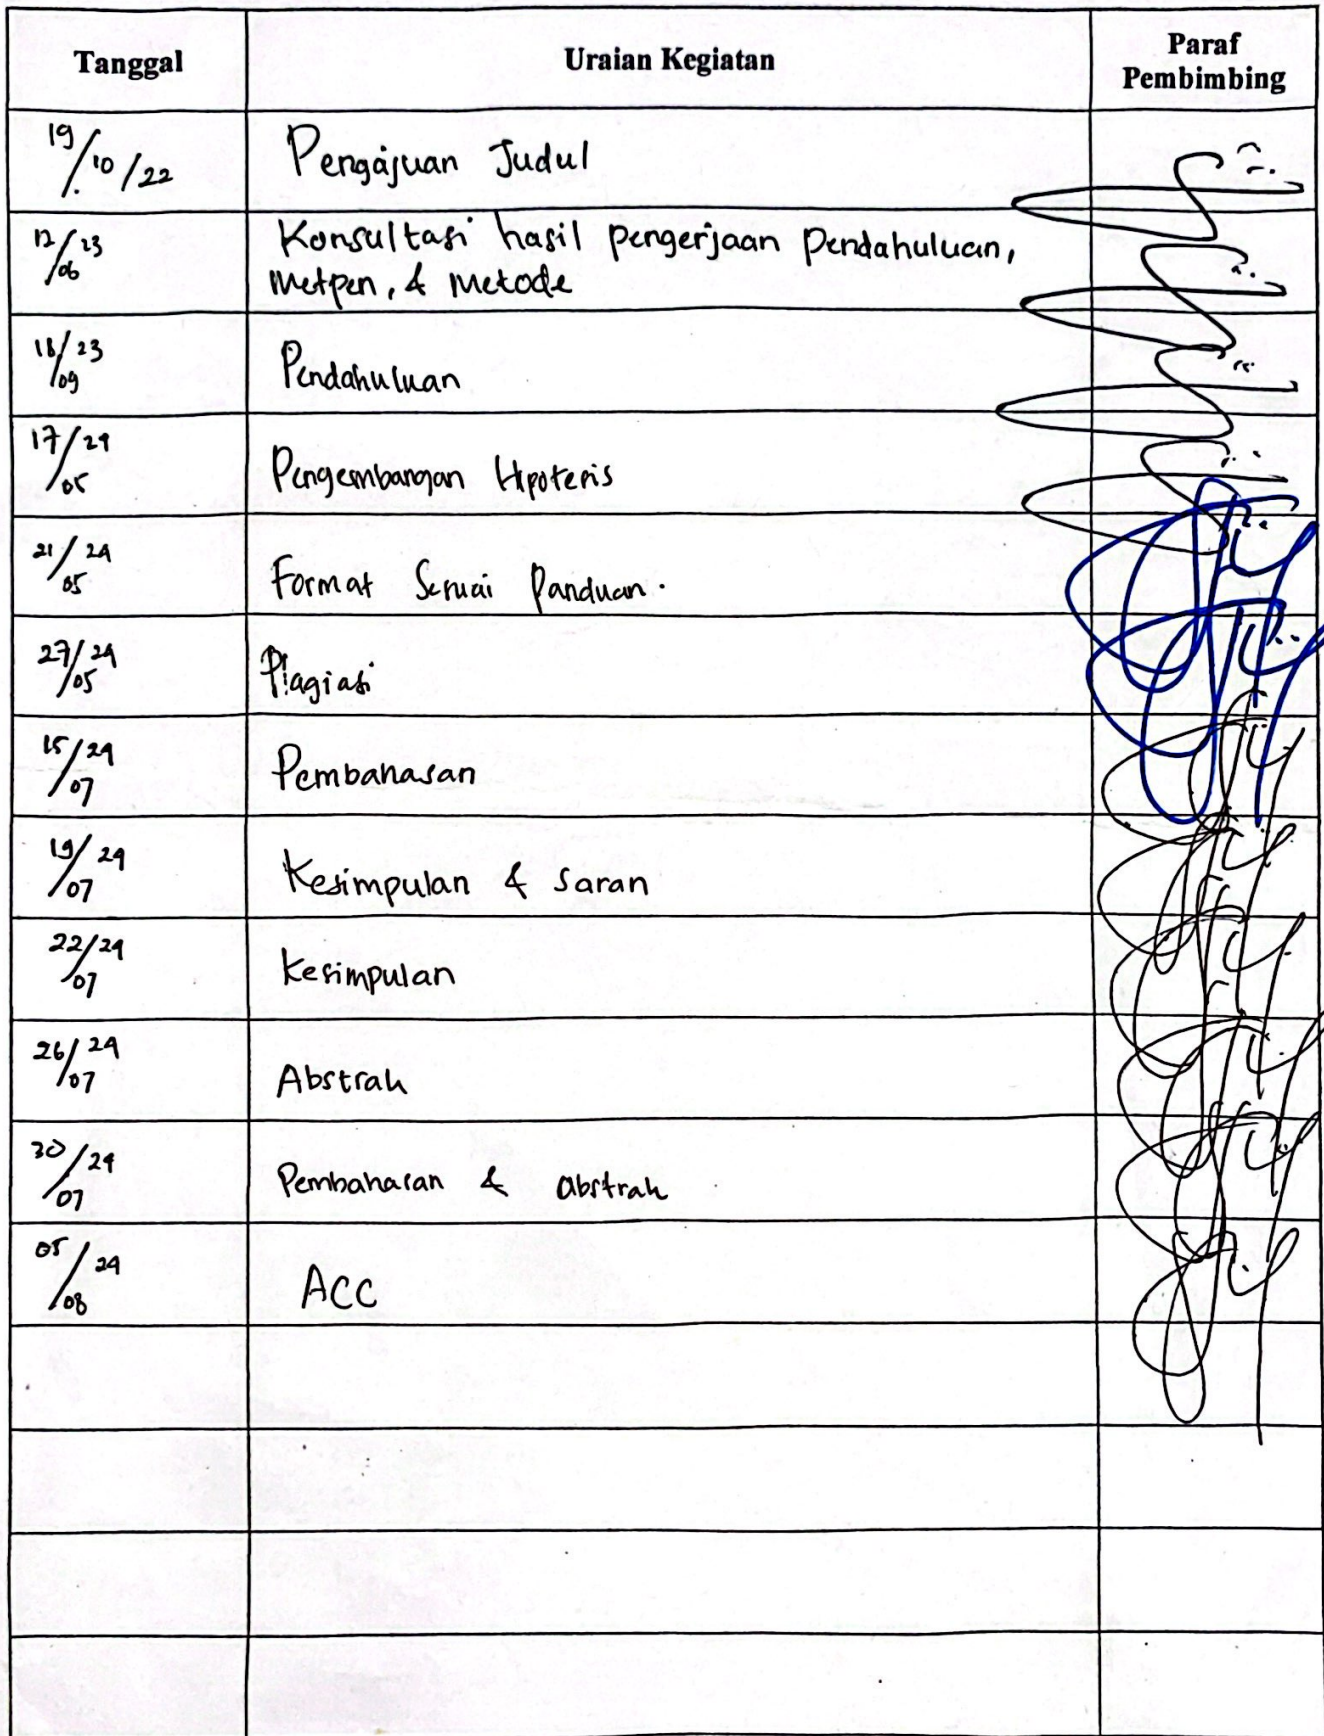 Tanggal Uraian Kegiatan Paraf
Pembimbing
19/10/22 Pengajuan Judul
12/06 23 Konsultasi hasil pengerjaan pendahuluan,
metpen, & metode
18/09 23 Pendahuluan
17/05 24 Pengembangan Hipotesis
21/05 24 Format Sesuai Panduan.
27/05 24 Plagiasi
15/07 24 Pembahasan
19/07 24 Kesimpulan & saran
22/07 24 Kesimpulan
26/07 24 Abstrak
30/07 24 Pembahasan & abstrak
05/08 24 ACC